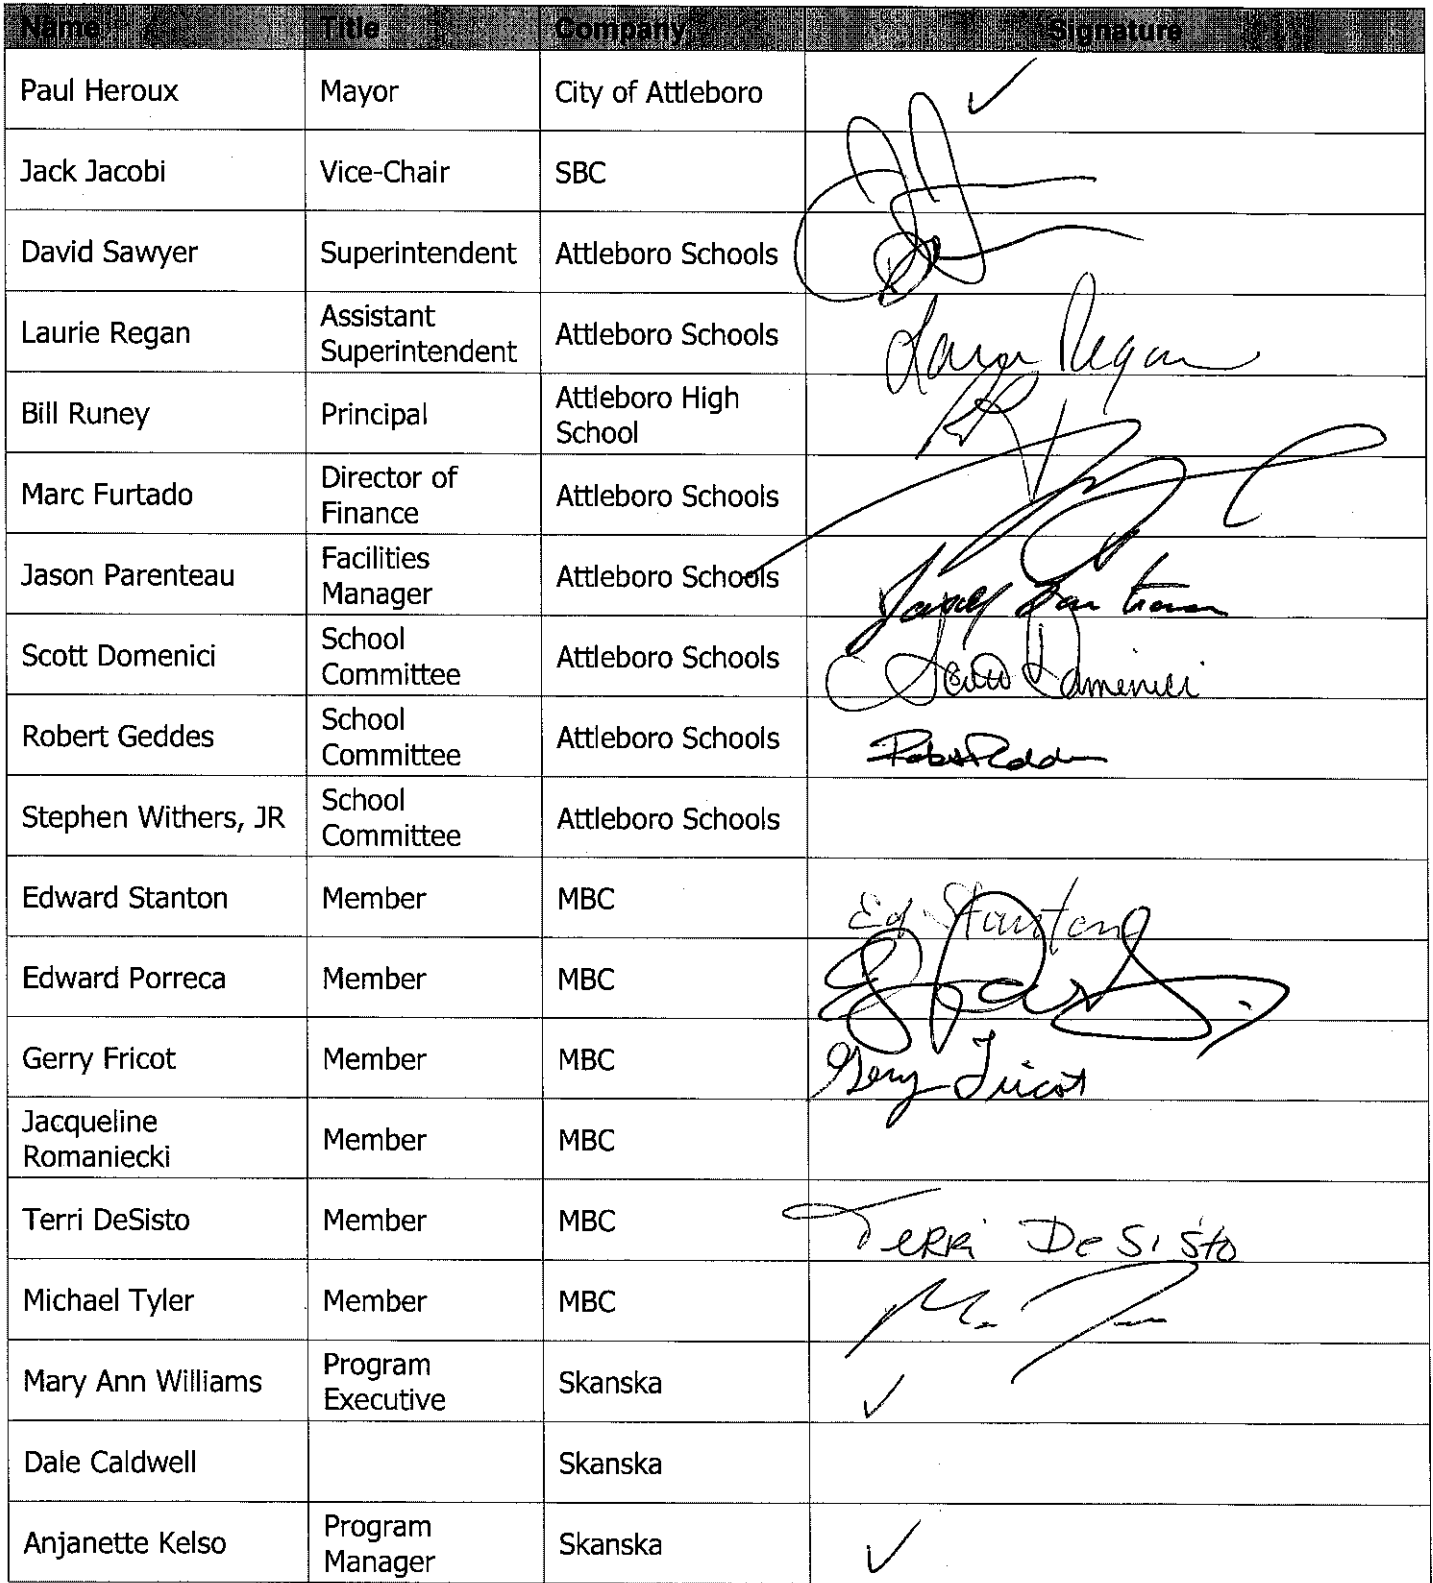 Name Title Company Signature
Paul Heroux Mayor City of Attleboro ✓
Jack Jacobi Vice-Chair SBC
David Sawyer Superintendent Attleboro Schools
Laurie Regan Assistant Superintendent Attleboro Schools Laurie Regan
Bill Runey Principal Attleboro High School
Marc Furtado Director of Finance Attleboro Schools
Jason Parenteau Facilities Manager Attleboro Schools
Scott Domenici School Committee Attleboro Schools Scott Domenici
Robert Geddes School Committee Attleboro Schools
Stephen Withers, JR School Committee Attleboro Schools
Edward Stanton Member MBC Ed Stanton
Edward Porreca Member MBC
Gerry Fricot Member MBC Gerry Fricot
Jacqueline Romaniecki Member MBC
Terri DeSisto Member MBC Terri DeSisto
Michael Tyler Member MBC
Mary Ann Williams Program Executive Skanska ✓
Dale Caldwell Skanska
Anjanette Kelso Program Manager Skanska ✓